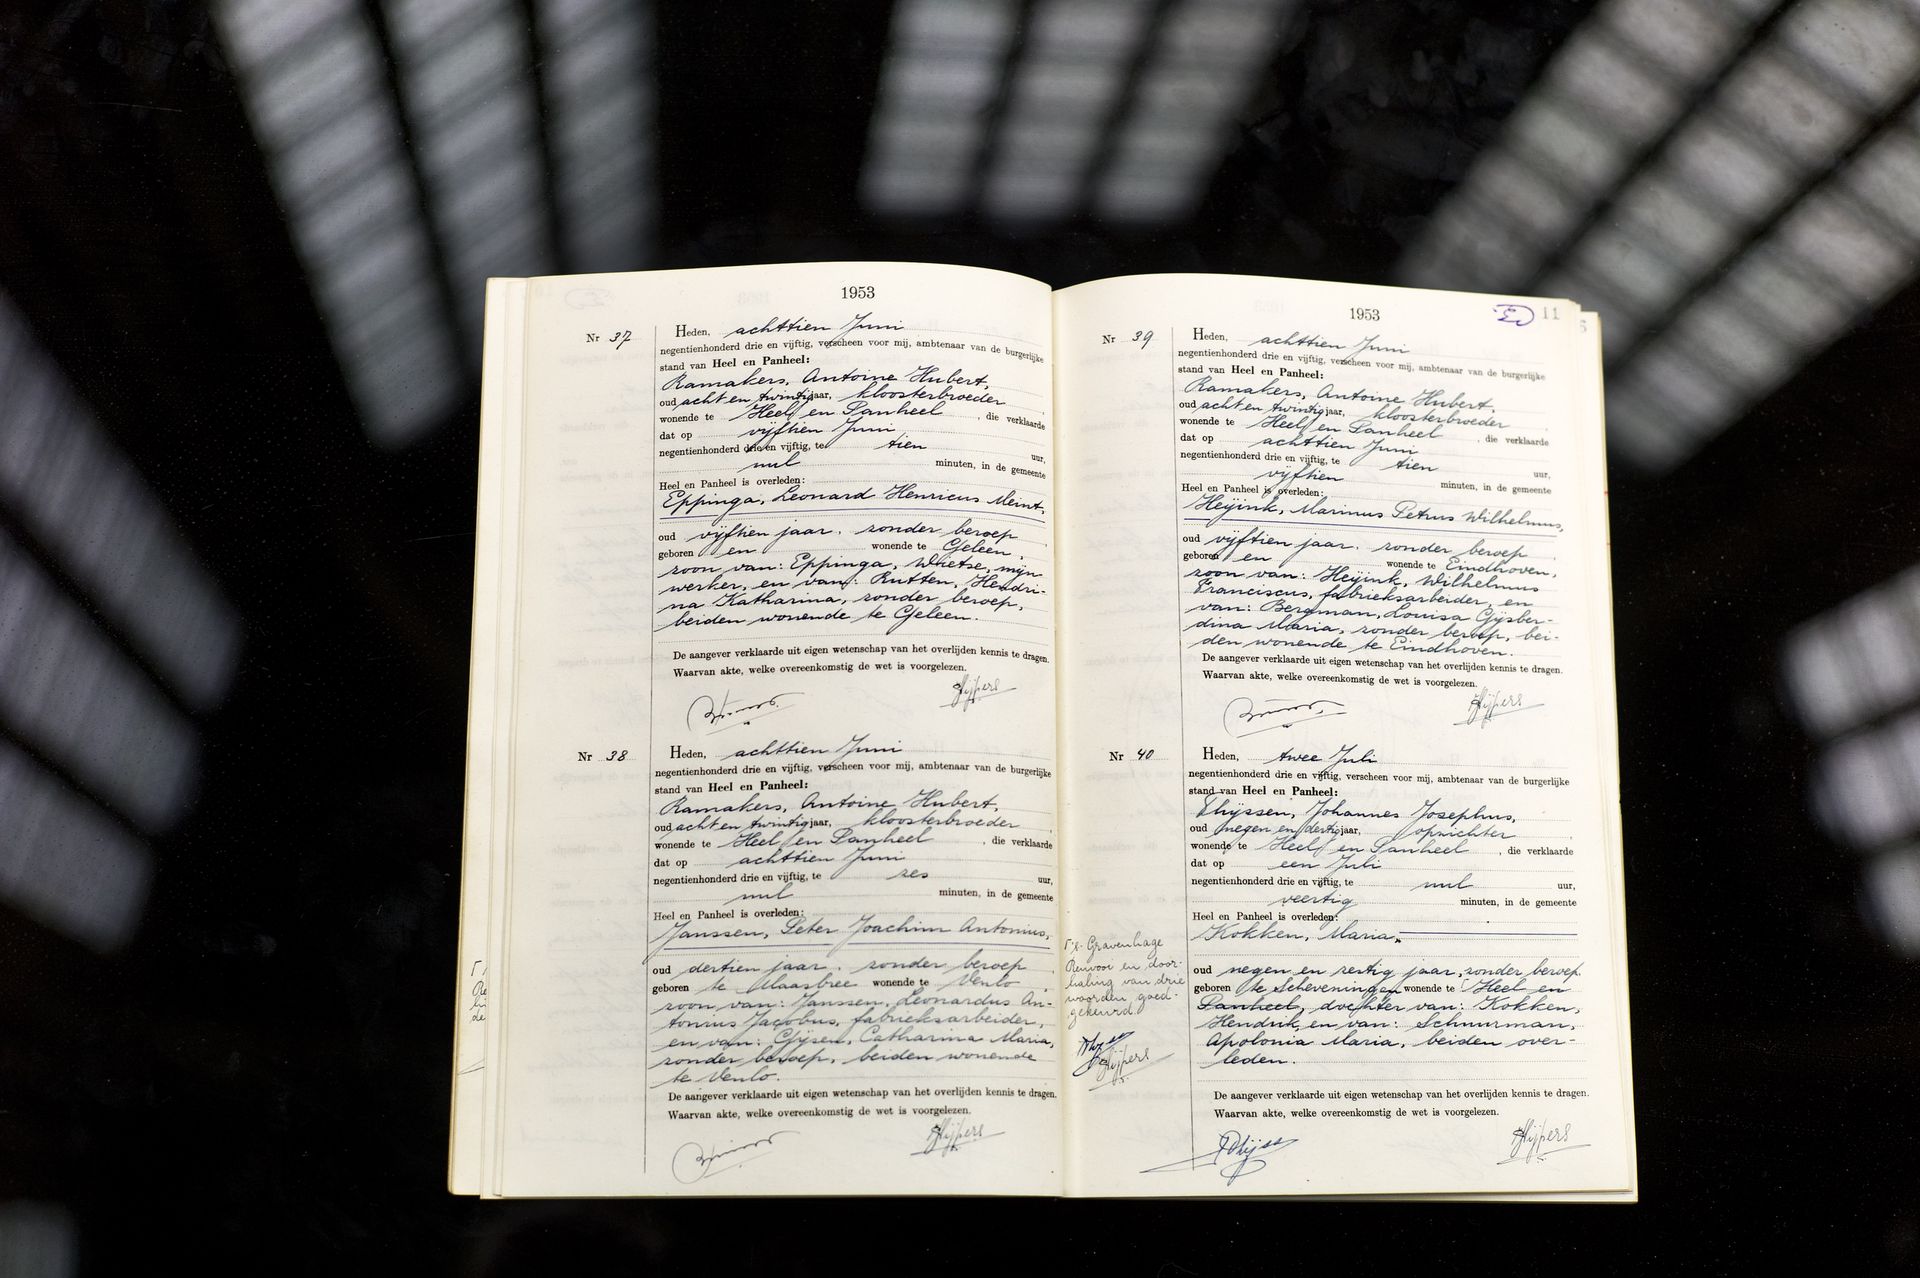 1953
Nr 37
Heden, achttien Juni
negentienhonderd drie en vijftig, verscheen voor mij, ambtenaar van de burgerlijke
stand van Heel en Panheel:
Ramakers, Antoine Hubert,
oud acht en twintig jaar, kloosterbroeder
wonende te Heel en Panheel, die verklaarde
dat op vijftien Juni
negentienhonderd drie en vijftig, te tien uur,
nul minuten, in de gemeente
Heel en Panheel is overleden:
Eppinga, Leonard Henricus Meint,
oud vijftien jaar, zonder beroep
geboren en wonende te Geleen,
zoon van: Eppinga, Whetse, mijn
werker, en van: Rutten, Hendri-
na Katharina, zonder beroep,
beiden wonende te Geleen.
De aangever verklaarde uit eigen wetenschap van het overlijden kennis te dragen.
Waarvan akte, welke overeenkomstig de wet is voorgelezen.
Nr 38
Heden, achttien Juni
negentienhonderd drie en vijftig, verscheen voor mij, ambtenaar van de burgerlijke
stand van Heel en Panheel:
Ramakers, Antoine Hubert,
oud acht en twintig jaar, kloosterbroeder
wonende te Heel en Panheel, die verklaarde
dat op achttien Juni
negentienhonderd drie en vijftig, te zes uur,
nul minuten, in de gemeente
Heel en Panheel is overleden:
Janssen, Peter Joachim Antonius,
oud dertien jaar, zonder beroep
geboren te Maasbree wonende te Venlo
zoon van: Janssen, Leonardus An-
tonius Jacobus, fabrieksarbeider,
en van: Gijsen, Catharina Maria,
zonder beroep, beiden wonende
te Venlo.
De aangever verklaarde uit eigen wetenschap van het overlijden kennis te dragen.
Waarvan akte, welke overeenkomstig de wet is voorgelezen.
1953
11
Nr 39
Heden, achttien Juni
negentienhonderd drie en vijftig, verscheen voor mij, ambtenaar van de burgerlijke
stand van Heel en Panheel:
Ramakers, Antoine Hubert,
oud acht en twintig jaar, kloosterbroeder
wonende te Heel en Panheel, die verklaarde
dat op achttien Juni
negentienhonderd drie en vijftig, te tien uur,
vijftien minuten, in de gemeente
Heel en Panheel is overleden:
Heijink, Marinus Petrus Wilhelmus,
oud vijftien jaar, zonder beroep
geboren en wonende te Eindhoven,
zoon van: Heijink, Wilhelmus
Franciscus, fabrieksarbeider, en
van: Bergman, Louisa Gijsber-
dina Maria, zonder beroep, bei-
den wonende te Eindhoven.
De aangever verklaarde uit eigen wetenschap van het overlijden kennis te dragen.
Waarvan akte, welke overeenkomstig de wet is voorgelezen.
Nr 40
Heden, twee Juli
negentienhonderd drie en vijftig, verscheen voor mij, ambtenaar van de burgerlijke
stand van Heel en Panheel:
Thijssen, Johannes Josephus,
oud negen en dertig jaar, opzichter
wonende te Heel en Panheel, die verklaarde
dat op een Juli
negentienhonderd drie en vijftig, te nul uur,
veertig minuten, in de gemeente
Heel en Panheel is overleden:
Kokken, Maria,
oud negen en zestig jaar, zonder beroep
geboren te Scheveningen wonende te Heel en
Panheel, dochter van: Kokken,
Hendrik, en van: Schuurman,
Apolonia Maria, beiden over-
leden.
De aangever verklaarde uit eigen wetenschap van het overlijden kennis te dragen.
Waarvan akte, welke overeenkomstig de wet is voorgelezen.
's-Gravenhage
Renvooi en door-
haling van drie
woorden goed-
gekeurd.